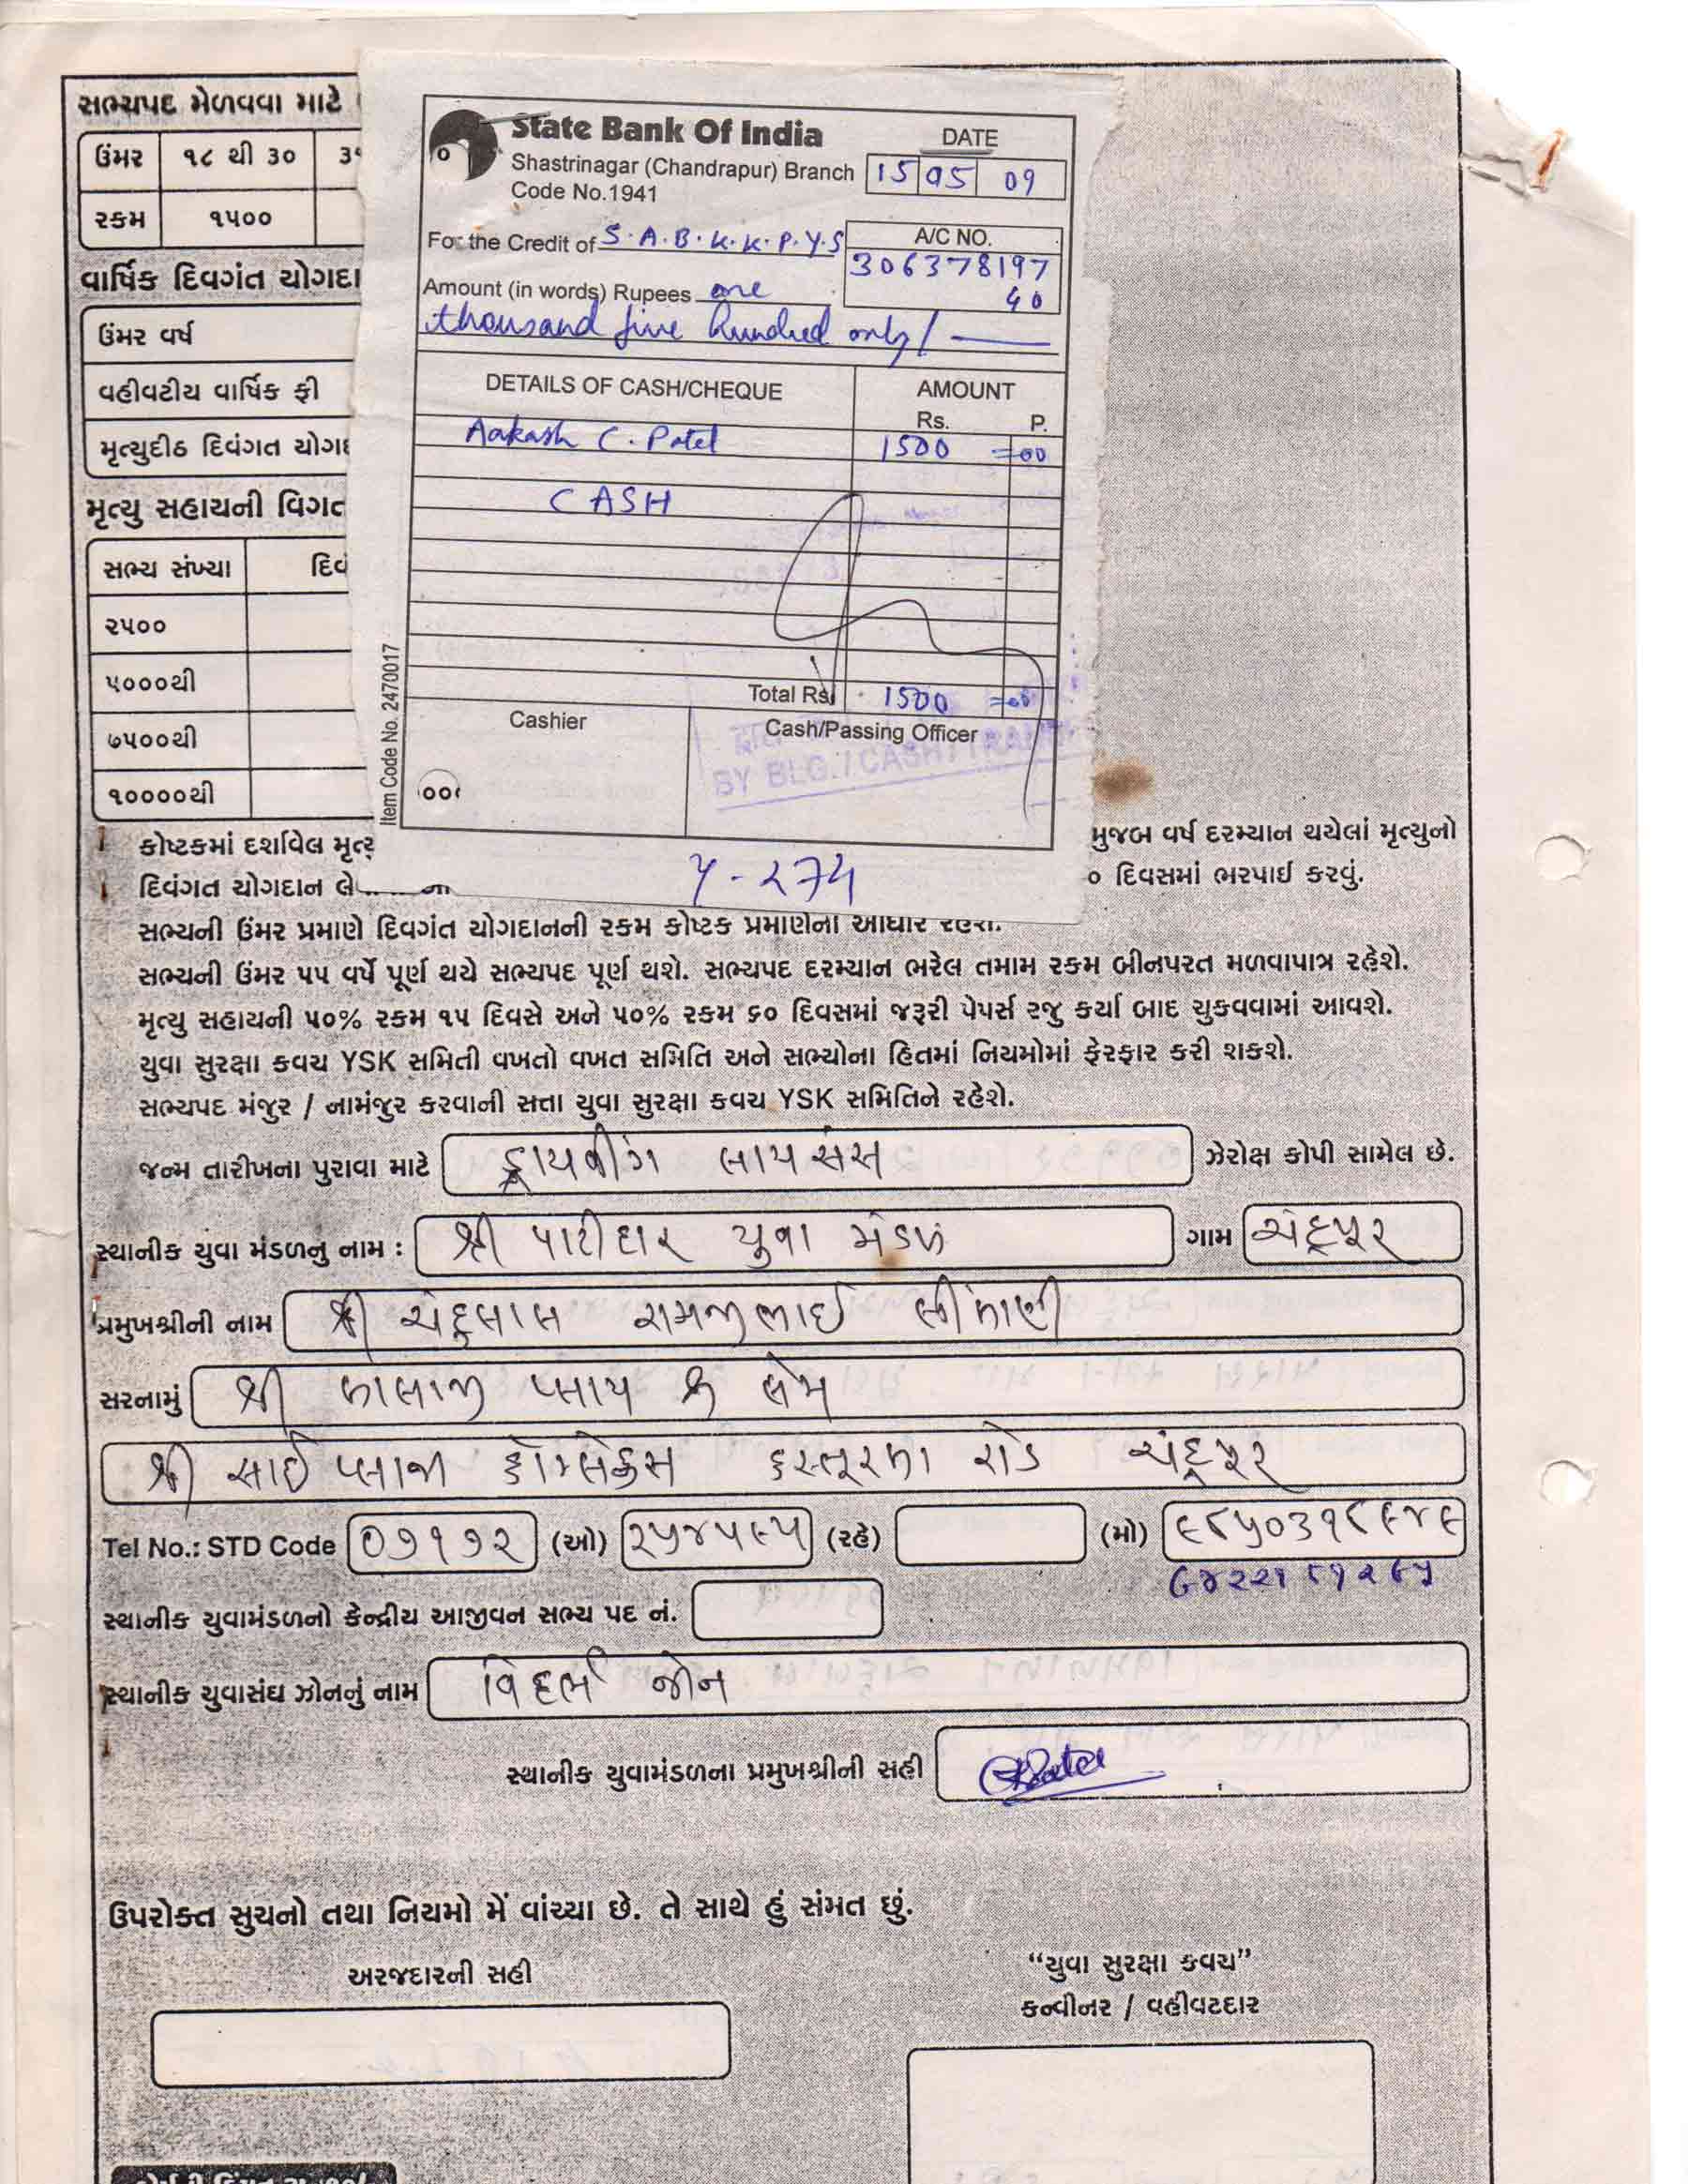 સભ્યપદ મેળવવા માટે
ઉંમર ૧૮ થી ૩૦
રકમ ૧૫૦૦
વાર્ષિક દિવગંત યોગદા
ઉંમર વર્ષ
વહીવટીય વાર્ષિક ફી
મૃત્યુદીઠ દિવંગત યોગદ
મૃત્યુ સહાયની વિગત
સભ્ય સંખ્યા દિવં
૨૫૦૦
૫૦૦૦થી
૭૫૦૦થી
૧૦૦૦૦થી
State Bank Of India
DATE
Shastrinagar (Chandrapur) Branch 15 05 09
Code No.1941
For the Credit of S.A.B.K.K.P.Y.S
A/C NO.
306378197
40
Amount (in words) Rupees one
thousand five hundred only/
DETAILS OF CASH/CHEQUE AMOUNT
Rs. P.
Aakash C. Patel 1500 =00
CASH
Total Rs. 1500 =00
Cashier Cash/Passing Officer
BY BLG./CASH/TRAN
Item Code No. 2470017
Y-274
કોષ્ટકમાં દર્શાવેલ મૃત્યુ મુજબ વર્ષ દરમ્યાન થયેલાં મૃત્યુનો
દિવંગત યોગદાન લે ૦ દિવસમાં ભરપાઈ કરવું.
સભ્યની ઉંમર પ્રમાણે દિવગંત યોગદાનની રકમ કોષ્ટક પ્રમાણેના આધારે રહેશે.
સભ્યની ઉંમર ૫૫ વર્ષે પૂર્ણ થયે સભ્યપદ પૂર્ણ થશે. સભ્યપદ દરમ્યાન ભરેલ તમામ રકમ બીનપરત મળવાપાત્ર રહેશે.
મૃત્યુ સહાયની ૫૦% રકમ ૧૫ દિવસે અને ૫૦% રકમ ૬૦ દિવસમાં જરૂરી પેપર્સ રજુ કર્યા બાદ ચુકવવામાં આવશે.
યુવા સુરક્ષા કવચ YSK સમિતી વખતો વખત સમિતિ અને સભ્યોના હિતમાં નિયમોમાં ફેરફાર કરી શકશે.
સભ્યપદ મંજુર / નામંજુર કરવાની સત્તા યુવા સુરક્ષા કવચ YSK સમિતિને રહેશે.
જન્મ તારીખના પુરાવા માટે ડ્રાયવીંગ લાયસંસ ઝેરોક્ષ કોપી સામેલ છે.
સ્થાનીક યુવા મંડળનુ નામ : શ્રી પાટીદાર યુવા મંડળ ગામ ચંદ્રપૂર
પ્રમુખશ્રીની નામ શ્રી ચંદુલાલ રામજીભાઈ લીંબાણી
સરનામું શ્રી બાલાજી પ્લાય &
શ્રી સાઈ પ્લાજા કોમ્પ્લેક્સ કસ્તૂરબા રોડ ચંદ્રપૂર
Tel No.: STD Code ૦૭૧૭૨ (ઓ) ૨૫૪૫૯૫ (રહે) (મો) ૯૮૫૦૩૧૮૯૪૯
સ્થાનીક યુવામંડળનો કેન્દ્રીય આજીવન સભ્ય પદ નં.
સ્થાનીક યુવાસંઘ ઝોનનું નામ વિદર્ભ જોન
સ્થાનીક યુવામંડળના પ્રમુખશ્રીની સહી
ઉપરોક્ત સુચનો તથા નિયમો મેં વાંચ્યા છે. તે સાથે હું સંમત છું.
અરજદારની સહી
“યુવા સુરક્ષા કવચ”
કન્વીનર / વહીવટદાર